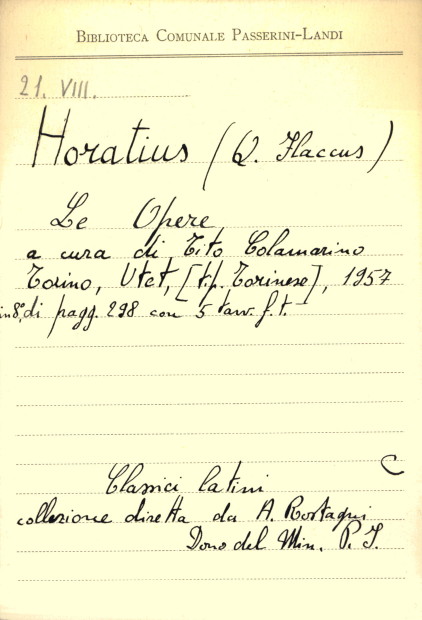 BIBLIOTECA COMUNALE PASSERINI-LANDI
21. VIII.
Horatius (Q. Flaccus)
Le Opere
a cura di Tito Colamarino
Torino, Utet, [tip. Torinese], 1957
in 8°, di pagg. 298 con 5 tavv. f. t.
C
Classici latini
collezione diretta da A. Rostagni
Dono del Min. P. I.